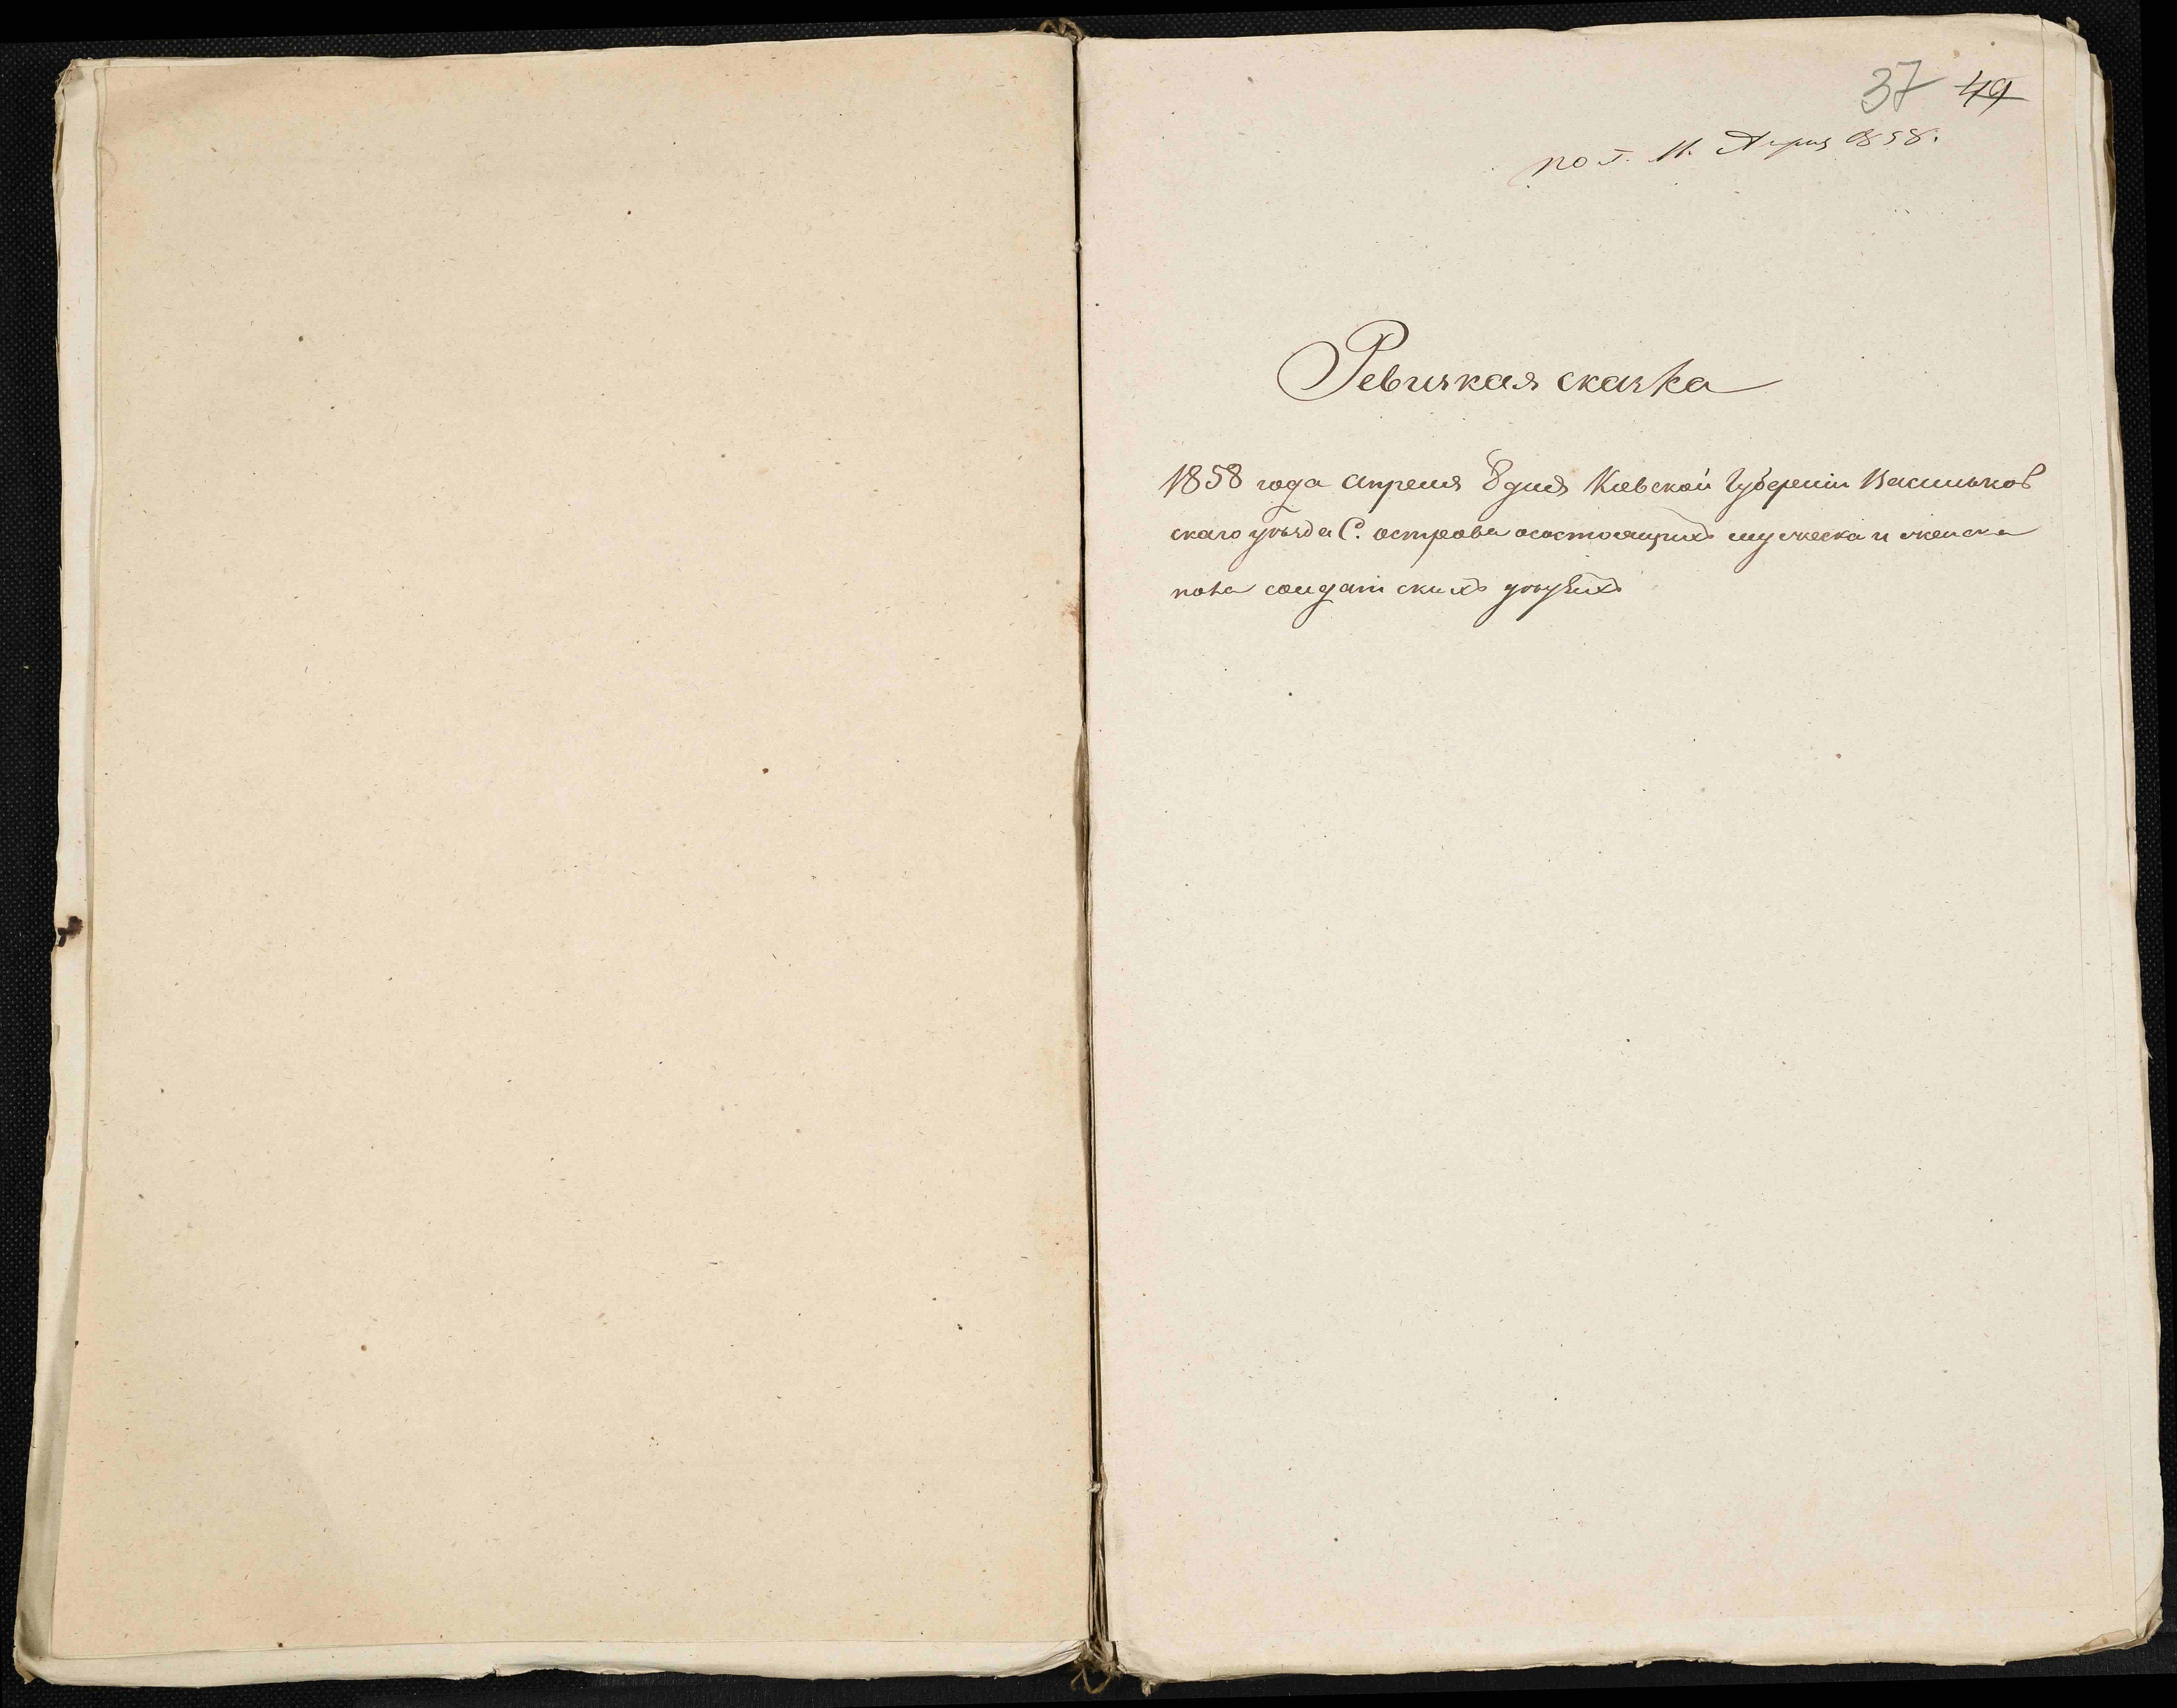 37 49
пол. 11. Апреля 1858.
Ревизкая сказка
1858 года апреля 8 дня Киевской Губернии Васильков
скаго уезда С. острова осостоящихъ мужеска и женска
пола солдатскихъ